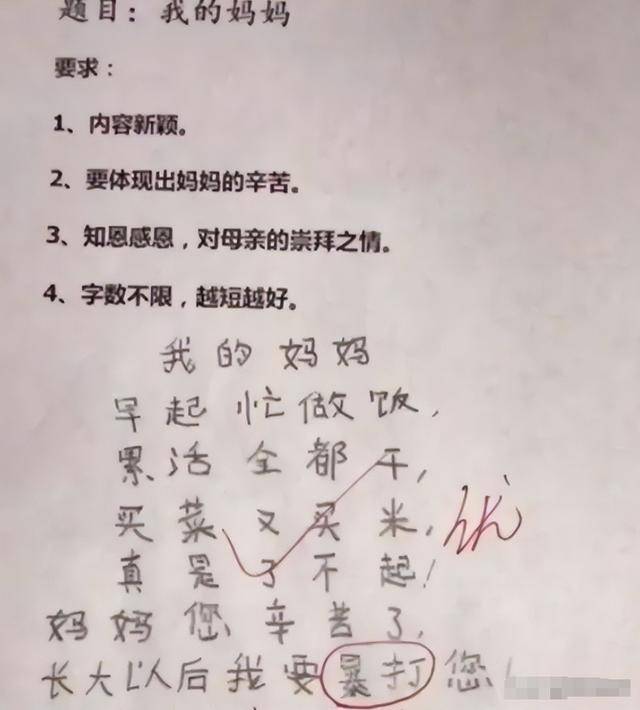 题目：我的妈妈
要求：
1、内容新颖。
2、要体现出妈妈的辛苦。
3、知恩感恩，对母亲的崇拜之情。
4、字数不限，越短越好。
我的妈妈
早起忙做饭，
累活全都干，
买菜又买米，
优
真是了不起！
妈妈您辛苦了，
长大以后我要暴打您！